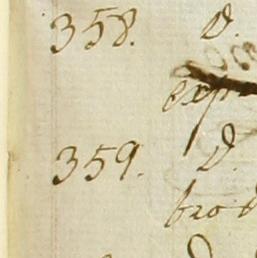 358. D.
exp
359. D.
brod
D